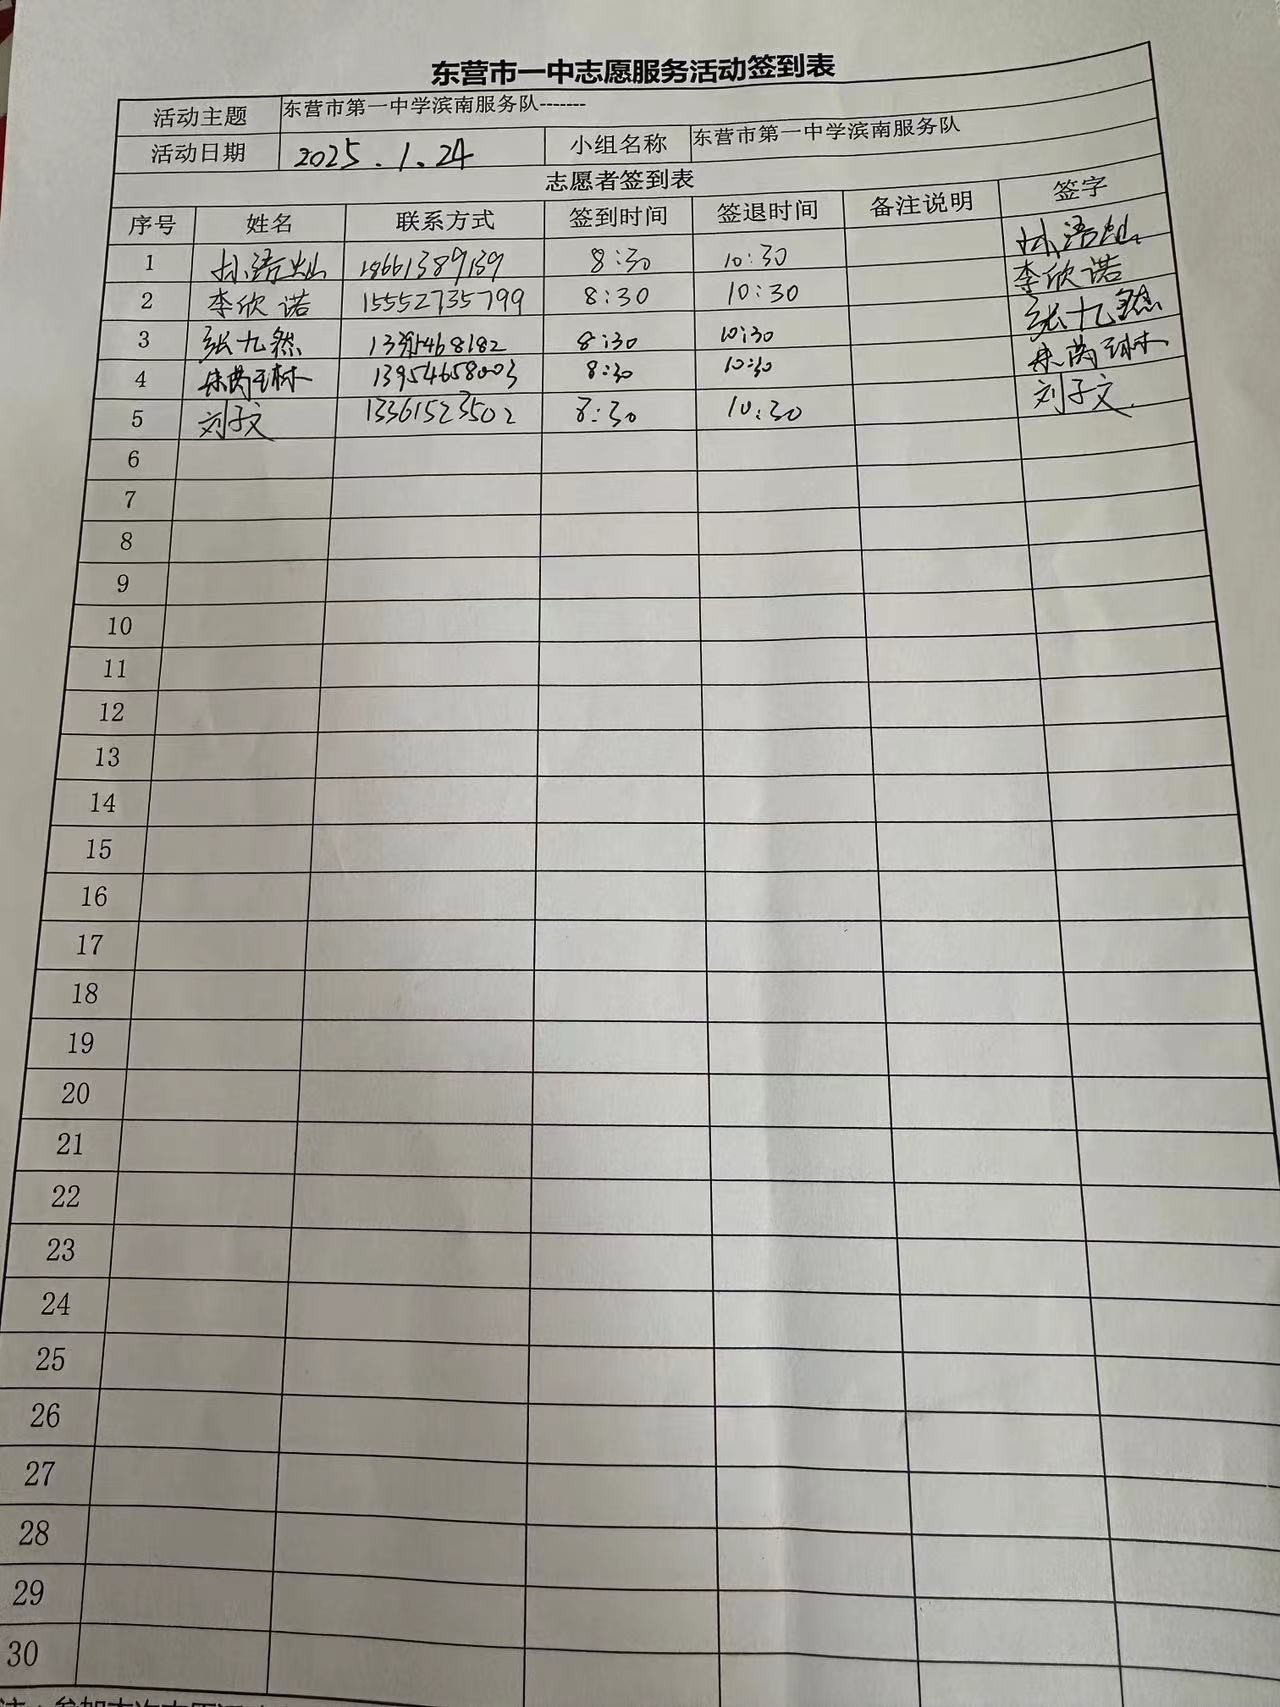 东营市一中志愿服务活动签到表
活动主题 东营市第一中学滨南服务队-------
活动日期 2025.1.24 小组名称 东营市第一中学滨南服务队
志愿者签到表
序号 姓名 联系方式 签到时间 签退时间 备注说明 签字
1 18661389139 8:30 10:30
2 李欣诺 15552735799 8:30 10:30 李欣诺
3 张九然 8:30 10:30 张九然
4 13954658003 8:30 10:30
5 刘子文 13361523502 8:30 10:30 刘子文
6
7
8
9
10
11
12
13
14
15
16
17
18
19
20
21
22
23
24
25
26
27
28
29
30